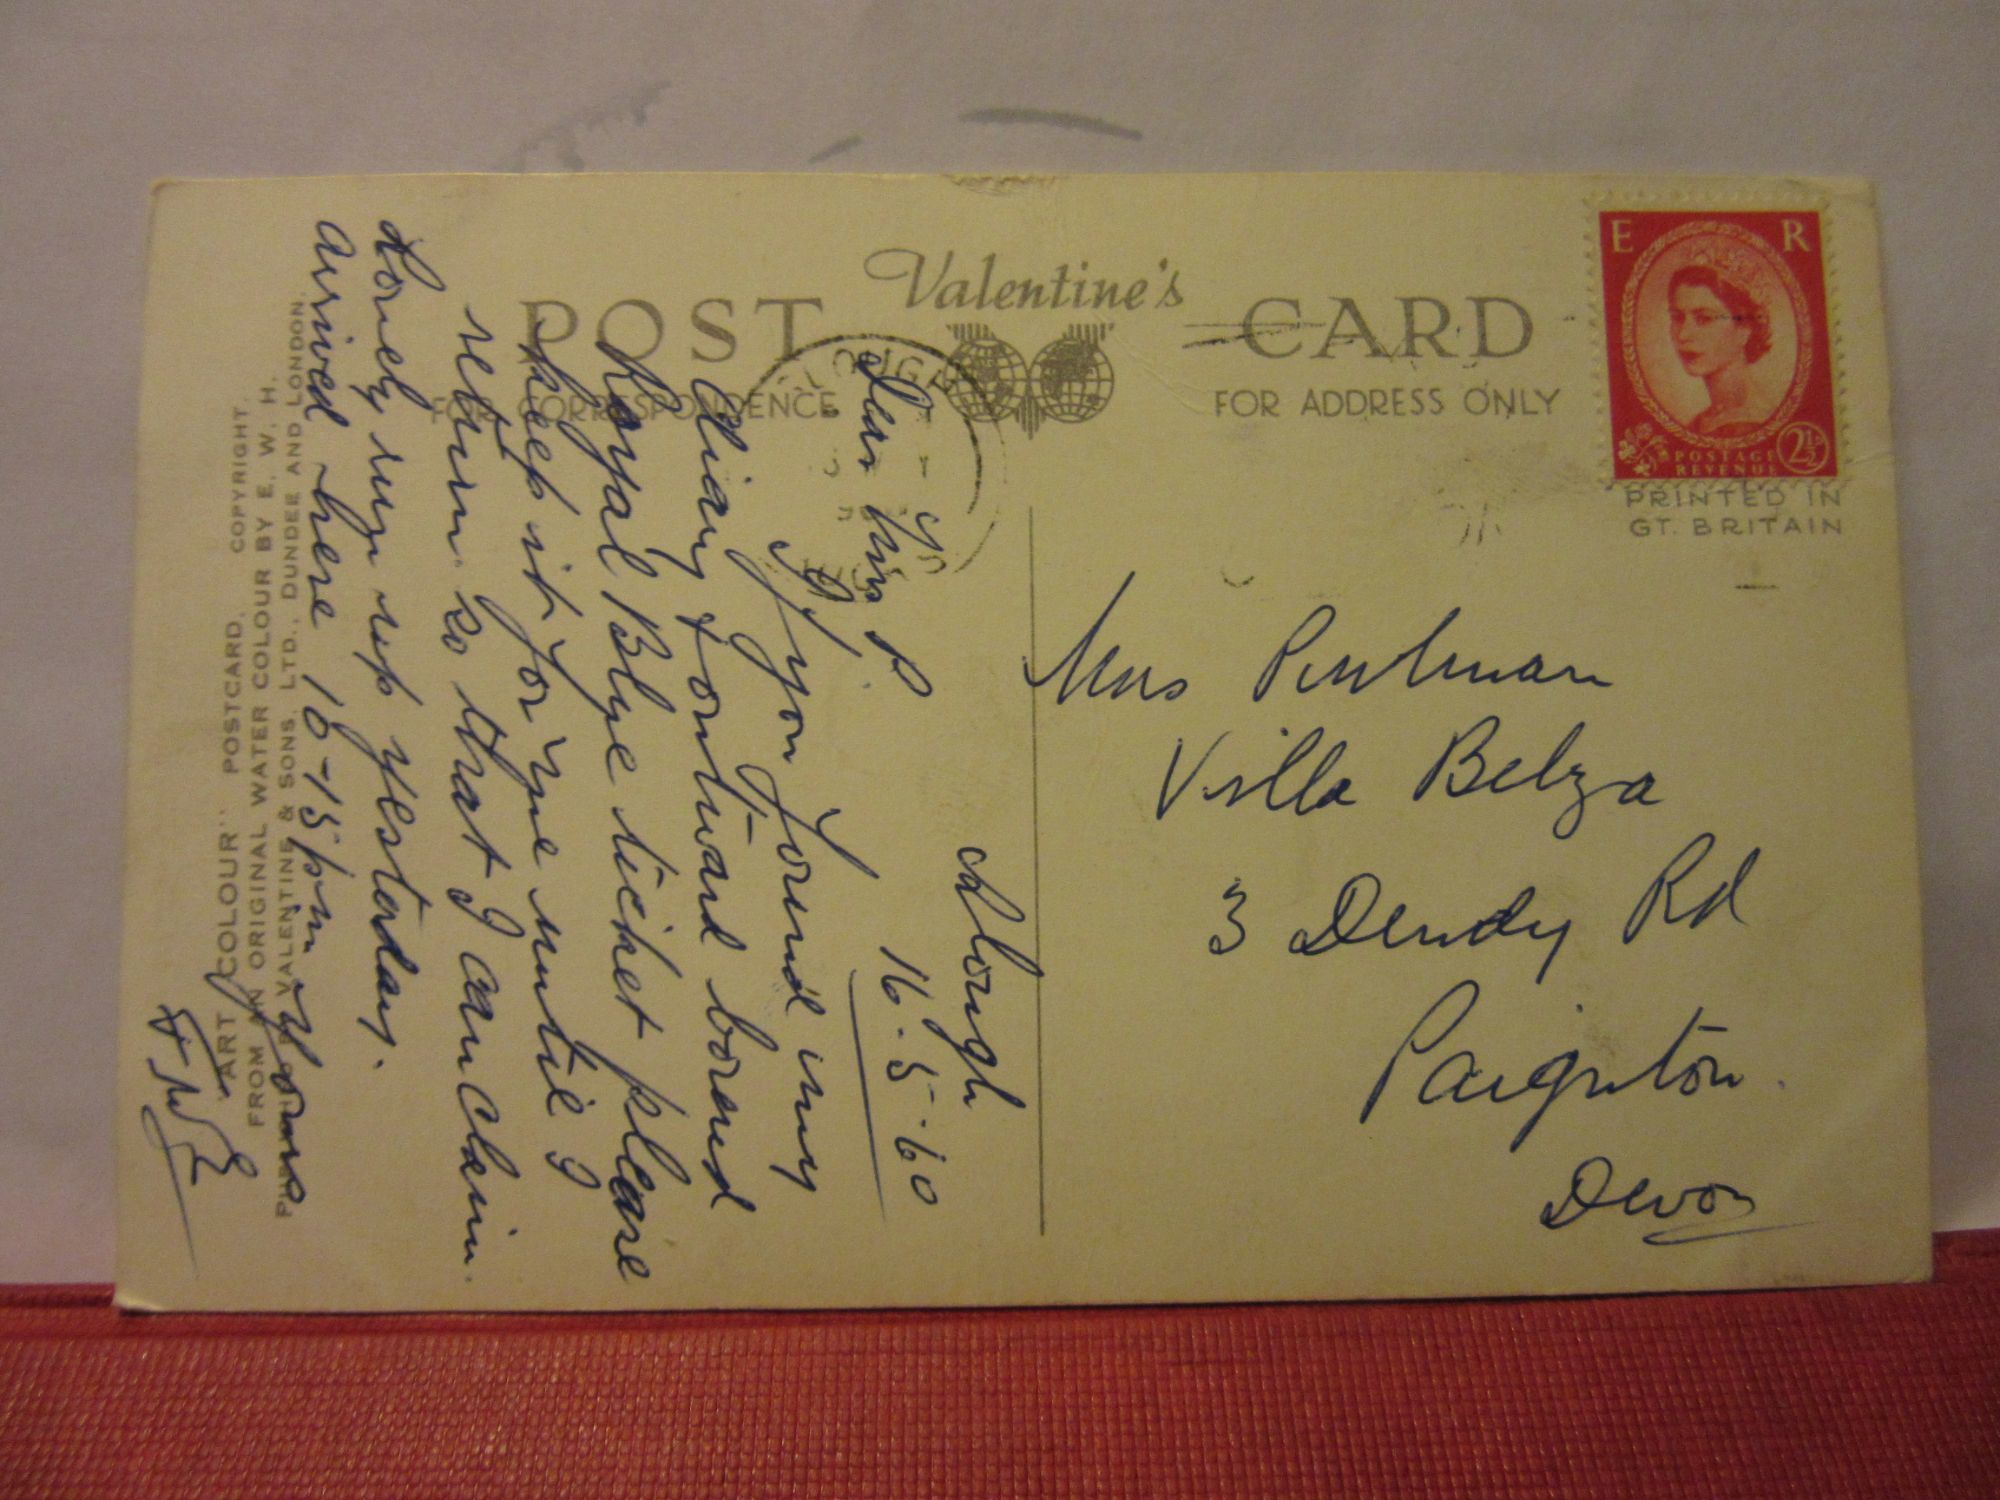 POST Valentine's CARD
FOR CORRESPONDENCE
FOR ADDRESS ONLY
E R
2½D
POSTAGE
REVENUE
PRINTED IN
GT. BRITAIN
Slough
16-5-60
Dear Mrs P
If you found my
diary & ontward bound
Royal Blue ticket please
keep it for me until I
return so that I can claim.
Lovely run up yesterday.
arrived here 10-15pm yours
"ART COLOUR" POSTCARD. COPYRIGHT.
FROM AN ORIGINAL WATER COLOUR BY E. W. H.
PUBLISHED BY VALENTINE & SONS, LTD., DUNDEE AND LONDON.
Mrs
Villa Belza
3 Dendy Rd
Paignton.
Devon